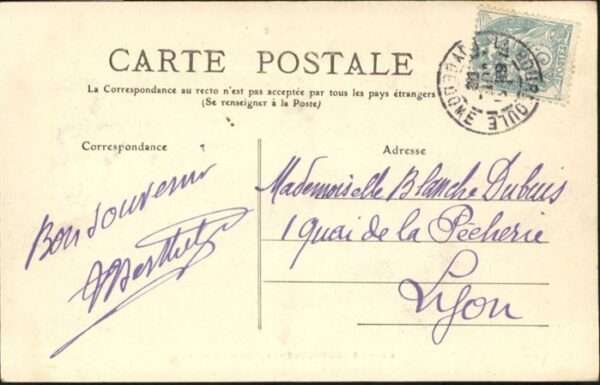 CARTE POSTALE
La Correspondance au recto n'est pas acceptée par tous les pays étrangers
(Se renseigner à la Poste)
LA BOURBOULE
PUY-DE-DOME
Correspondance
Adresse
Bon Souvenir
Mademoiselle Blanche Dubuis
1 Quai de la Pêcherie
Lyon